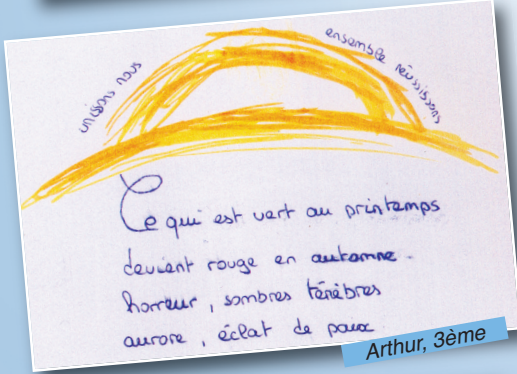 unissons nous
ensemble réussissons
Ce qui est vert au printemps
devient rouge en automne.
horreur, sombres ténèbres
aurore, éclat de paix
Arthur, 3ème